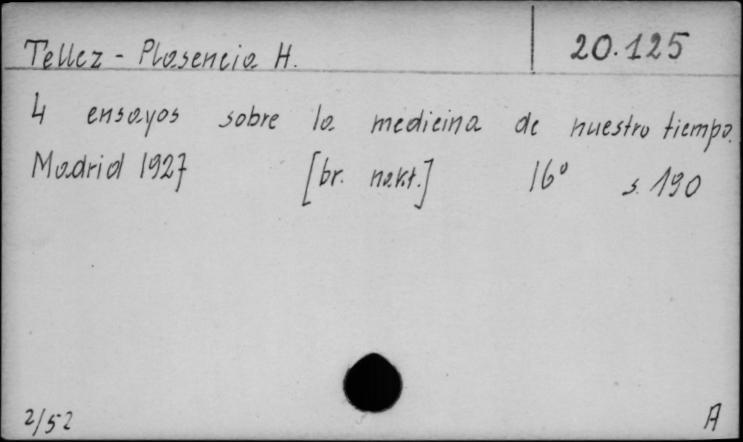 Tellez - Plasencia H. 20.125
4 ensayos sobre la medicina de nuestro tiempo.
Madrid 1927 [br. nakt.] 16° s. 190
2/52 A